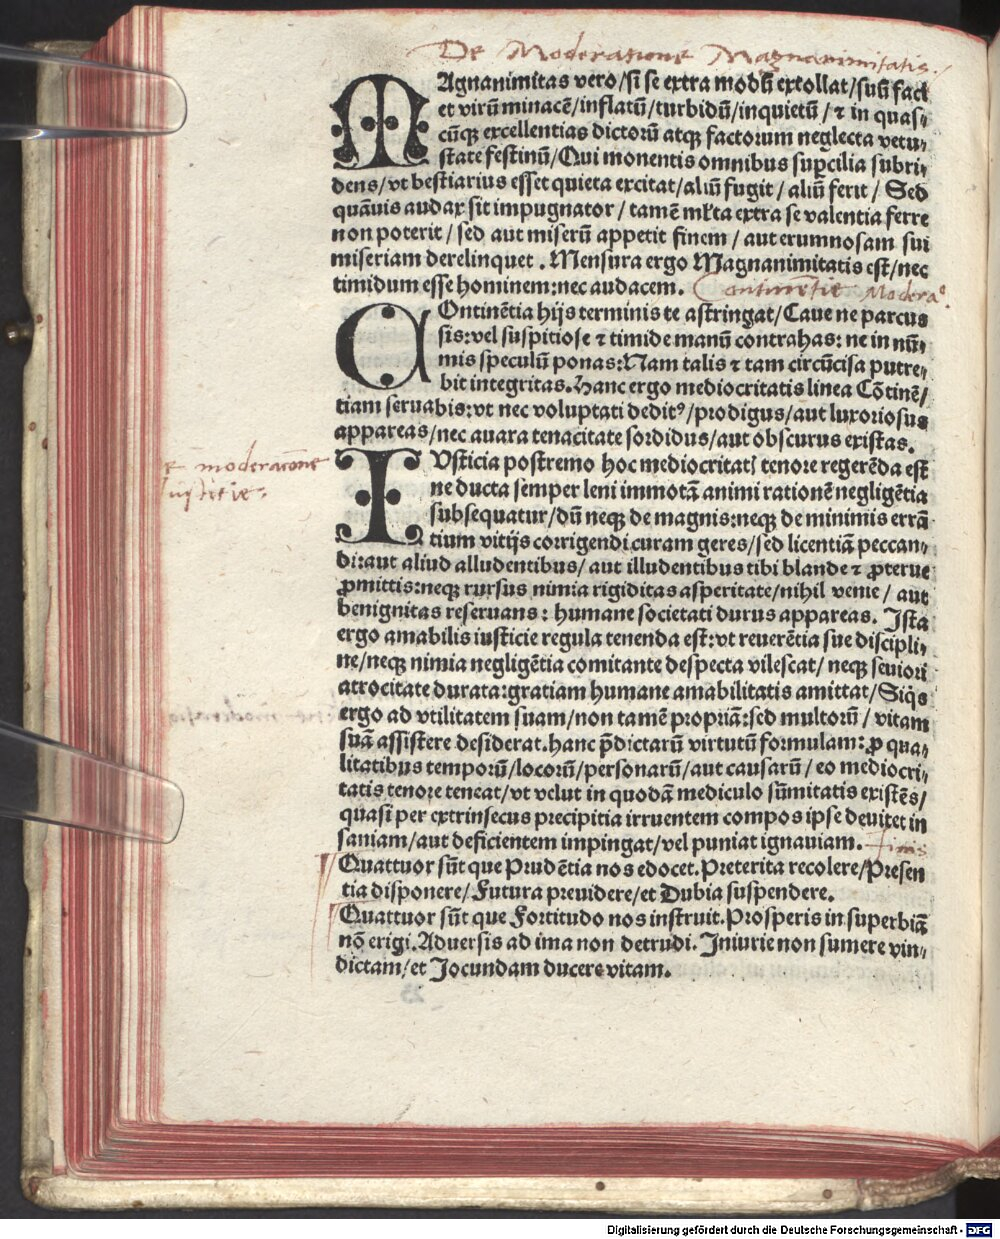 De Moderatione Magnanimitatis.
MAgnanimitas vero/si se extra modū extollat/suū facl
et virū minacē/inflatū/turbidū/inquietū/ ⁊ in quas,
cūqꝫ excellentias dictorū atqꝫ factorum neglecta vetu,
state festinū/Qui monentis omnibus suꝑcilia subri,
dens/vt bestiarius esset quieta excitat/aliū fugit/ aliū ferit/ Sed
quāuis audax sit impugnator/ tamē ml̓ta extra se valentia ferre
non poterit/sed aut miserū appetit finem/ aut erumnosam sui
miseriam derelinquet. Mensura ergo Magnanimitatis est/nec
timidum esse hominem:nec audacem.
Continentie Modera°.
COntinētia hijs terminis te astringat/Caue ne parcus
sis:vel suspitiose ⁊ timide manū contrahas: ne in nū,
mis speculū ponas:Nam talis ⁊ tam circūcisa putre,
bit integritas.Hanc ergo mediocritatis linea Cōtinē/
tiam seruabis:vt nec voluptati deditꝰ/prodigus/aut luxoriosus
appareas/nec auara tenacitate sordidus/aut obscurus existas.
e moderacōne
iusticie.
IVsticia postremo hoc mediocritatꝭ tenore regerēda est
ne ducta semper leni immotā animi rationē negligētia
subsequatur/dū neqꝫ de magnis:neqꝫ de minimis errā
tium vitijs corrigendi curam geres/sed licentiā peccan,
di:aut aliud alludentibus/ aut illudentibus tibi blande ⁊ ꝓterue
ꝓmittis:neqꝫ rursus nimia rigiditas asperitate/nihil venie/ aut
benignitas reseruans: humane societati durus appareas. Ista
ergo amabilis iusticie regula tenenda est:vt reuerētia sue discipli,
ne/neqꝫ nimia negligētia comitante despecta vilescat/ neqꝫ seuiori
atrocitate durata:gratiam humane amabilitatis amittat/Siq̄s
ergo ad vtilitatem suam/non tamē propriā:sed multorū/ vitam
suā assistere desiderat.hanc p̄dictarū virtutū formulam:ꝓ qua,
litatibus temporū/locorū/personarū/aut causarū/ eo mediocri,
tatis tenore teneat/vt velut in quodā mediculo sūmitatis existēs/
quasi per extrinsecus precipitia irruentem compos ipse deuitet in
saniam/aut deficientem impingat/vel puniat ignauiam.
finis
Quattuor sūt que Prudētia nos edocet.Preterita recolere/Presen
tia disponere/Futura preuidere/et Dubia suspendere.
Quattuor sūt que Fortitudo nos instruit.Prosperis in superbiā
nō erigi.Aduersis ad ima non detrudi.Iniurie non sumere vin,
dictam/et Iocundam ducere vitam.
Digitalisierung gefördert durch die Deutsche Forschungsgemeinschaft - DFG